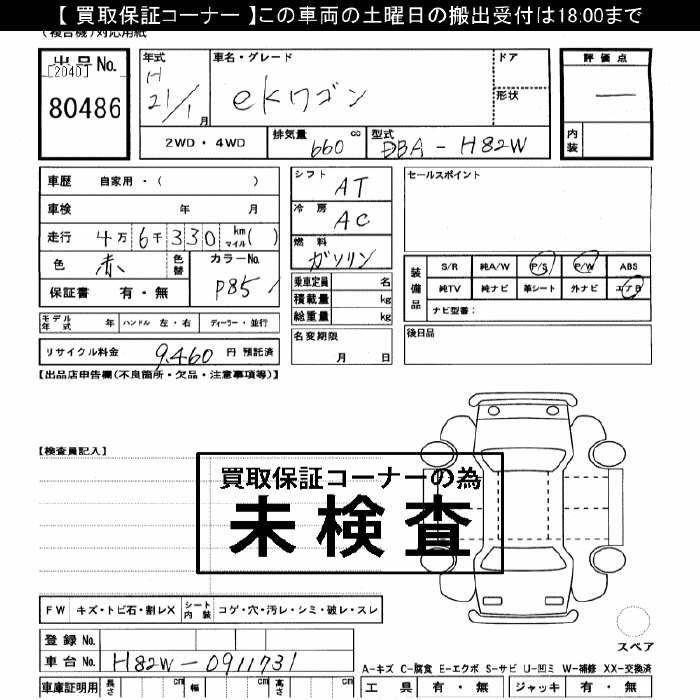 【 買取保証コーナー 】この車両の土曜日の搬出受付は18:00まで
(複合機)対応用紙
出品No.
[2040]
80486
年式
H
21/1月
車名・グレード
ekワゴン
ドア
形状
評価点
—
内装
2WD・4WD
排気量
660 cc
型式
DBA - H82W
車歴 自家用・( )
車検 年 月
走行 4万6千330 km マイル( )
色 赤 色替
カラーNo.
P85
保証書 有・無
シフト AT
冷房 AC
燃料 ガソリン
乗車定員 名
積載量 kg
総重量 kg
セールスポイント
装備品
S/R 純A/W P/S P/W ABS
純TV 純ナビ 革シート 外ナビ エアB
ナビ型番:
モデル年式 年 ハンドル 左・右 ディーラー・並行
名変期限
月 日
後日品
リサイクル料金 9,460 円 預託済
【出品店申告欄(不良箇所・欠品・注意事項等)】
【検査員記入】
買取保証コーナーの為
未検査
FW キズ・トビ石・割レX シート内装 コゲ・穴・汚レ・シミ・破レ・スレ
スペア
登録 No.
車台 No. H82W-0911731
A-キズ C-腐食 E-エクボ S-サビ U-凹ミ W-補修 XX-交換済
車庫証明用 長さ cm 幅 cm 高さ cm
工具 有・無 ジャッキ 有・無